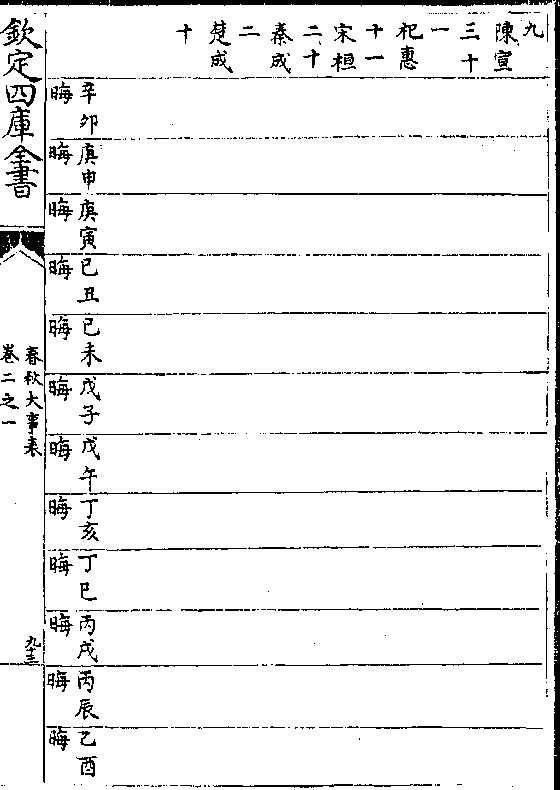 九
陳宣
三十
一
杞惠
十一
宋桓
二十
秦成
二
楚成
十
辛卯
晦
庚申
晦
庚寅
晦
己丑
晦
己未
晦
戊子
晦
戊午
晦
丁亥
晦
丁巳
晦
丙戌
晦
丙辰
晦
乙酉
晦
欽定四庫全書
春秋大事表
卷二之一
九十三